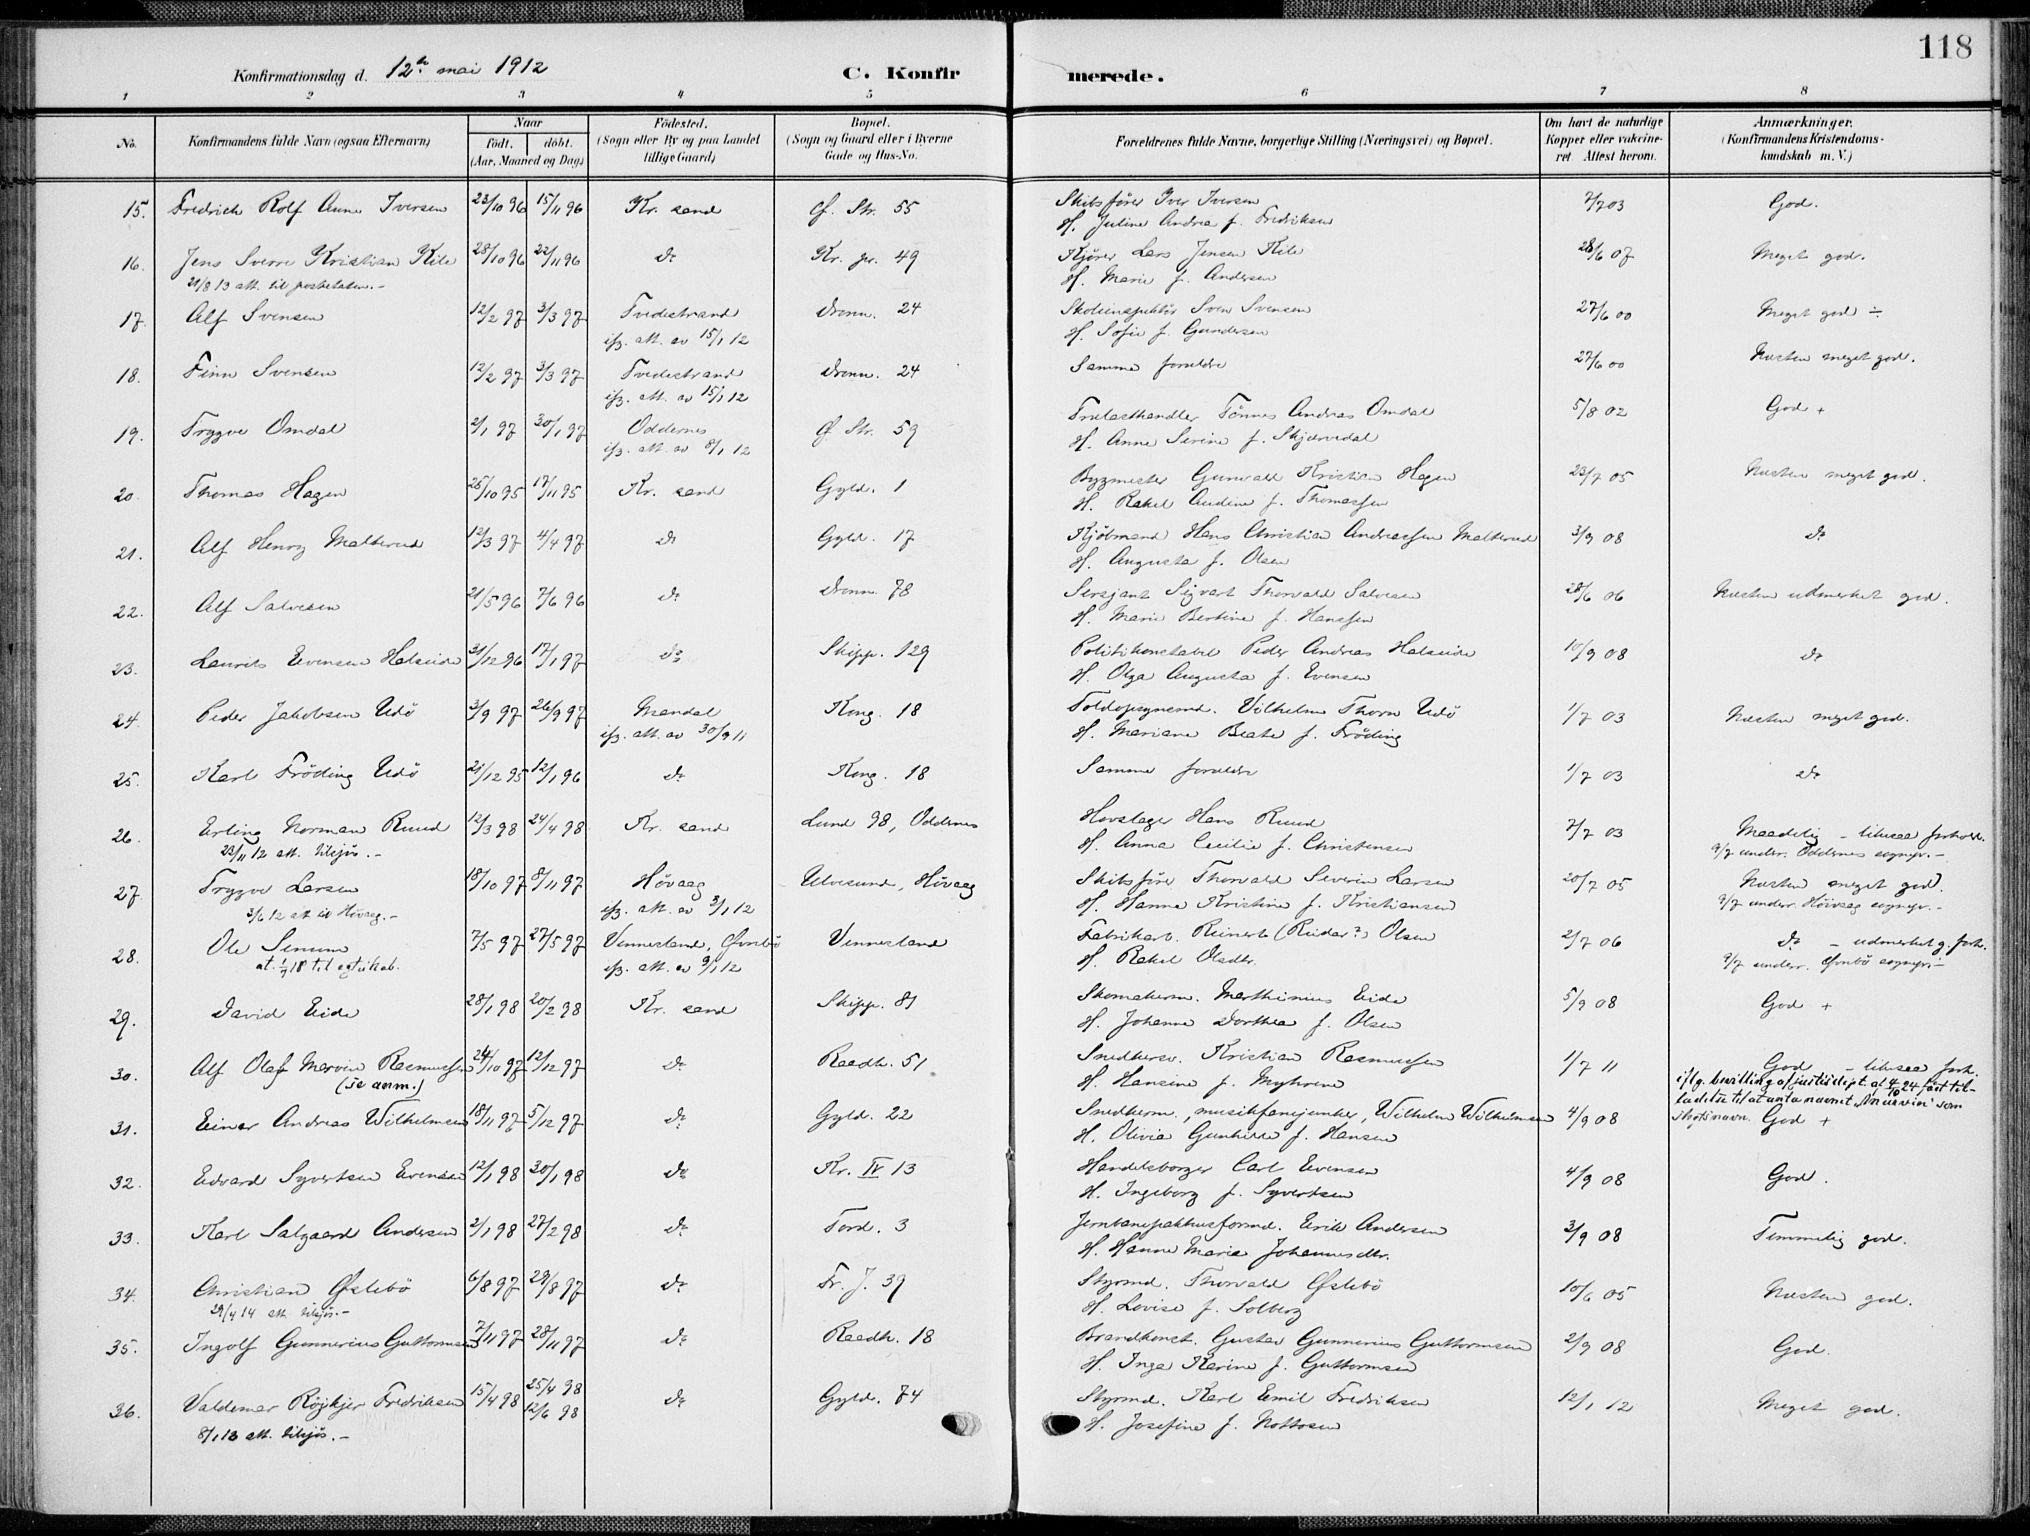 118
Konfirmationsdag d. 12te mai 1912
C. Konfirmerede.
1 2 3 4 5 6 7 8
No. Konfirmandens fulde Navn (ogsaa Efternavn) Naar født. døbt. (Aar, Maaned og Dag) Fødested. (Sogn eller By og paa Landet tillige Gaard) Bopæl. (Sogn og Gaard eller i Byerne Gade og Hus-No. Forældrenes fulde Navne, borgerlige Stilling (Næringsvei) og Bopæl. Om havt de naturlige Kopper eller vakcineret Attest herom. Anmærkninger. (Konfirmandens Kristendomskundskab m. V.)
15. Fredrick Rolf Iversen 23/10 96 15/11 96 Kr. sand Str. 55 Skibsfører Iver Iversen 7/7 03 God.
H. Juline Andrea f. Fredriksen
16. Jens Sverre Kristian Kile 28/10 96 22/11 96 do Kr. pr. 49 Kjører Lars Jensen Kile 28/6 07 Meget god.
21/8 13 att. til postetaten.- H. Marie f. Andersen
17. Alf Svensen 12/2 97 3/3 97 Tvedestrand Dronn. 24 Skoleinspektør Sven Svensen 27/6 00 Meget god ÷
ifg. att. av 15/1 12 H. Sofie f. Gundersen
18. Finn Svensen 12/2 97 3/3 97 Tvedestrand Dronn. 24 Samme forældre 27/6 00 Næsten meget god.
ifg. att. av 15/1 12
19. Trygve Omdal 2/1 97 30/1 97 Oddernes Ø Str. 59 Trælasthandler Tønnes Andreas Omdal 5/8 02 God +
ifg. att. av 8/1 12 H. Anne Serine f. Skjærvedal
20. Thomas Hagen 25/10 95 17/11 95 Kr. sand Gyld. 1 Bygmester Gunvald Kristian Hagen 23/7 05 Næsten meget god.
H. Rakel Andine f. Thomassen
21. Alf Henry Malterud 12/3 97 4/4 97 do Gyld. 17 Kjøbmand Hans Christian Andreassen Malterud 3/9 08 do
H. Augusta f. Olsen
22. Alf Salvesen 21/5 96 7/6 96 do Dronn. 78 Sersjant Sigvart Thorvald Salvesen 28/6 06 Næsten udmerket god.
H. Marie Bertine f. Hanssen
23. Laurits Evensen Halseide 31/12 96 17/1 97 do Skipp. 129 Politikonstabel Peder Andreas Halseide 10/9 08 do
H. Olga Augusta f. Evensen
24. Peder Jakobsen Udø 3/9 97 26/9 97 Mandal Kong. 18 Toldopsynsmd. Vilhelm Thorn Udø 1/7 03 Næsten meget god.
ifg. att. av 30/9 11 H. Mariane Beate f. Frøding
25. Karl Frøding Udø 21/12 95 12/1 96 do Kong. 18 Samme forældre 1/7 03 do
26. Erling Norman Ruud 12/3 98 24/4 98 Kr. sand Lund 98, Oddernes Hovslager Hans Ruud 7/7 03 Maadelig - likesaa forhold.
23/11 12 att. tilsjøs.- H. Anna Cecilie f. Christensen 9/7 underr. Oddernes sognepr.-
27. Trygve Larsen 18/10 97 8/11 97 Høvaag Ulvesund, Høvaag Skibsfører Thorvald Severin Larsen 20/7 05 Næsten meget god.
3/6 12 att til Høvaag.- ifg. att. av 3/1 12 H. Hanne Kristine f. Kristiansen 9/7 underr. Høivaag sognepr.-
28. Ole Senum 7/5 97 27/5 97 Vennesland, Øvrebø Vennesland Fabrikarb. Reinert (Reidar?) Olsen 2/7 06 do - udmerket g. forh.
at. 1/7 18 til egteskab. ifg. att. av 9/1 12 H. Rakel Olsdtr. 9/7 underr. Øvrebø sognepr.-
29. David Eide 28/1 98 20/2 98 Kr. sand Skipp. 81 Skomakerm. Marthinius Eide 5/9 08 God +
H. Johanne Dorthea f. Olsen
30. Alf Olaf Marvin Rasmussen 24/10 97 12/12 97 do Raadh. 51 Snedkersv. Kristian Rasmussen 1/7 11 God - likesaa forh.
(se anm.) H. Hansine f. Myhren iflg. bevilling af justisdept. at 4/10 24 fåt tilladelse til at anta navnet som slegtsnavn.
31. Einar Andreas Wilhelmsen 18/11 97 5/12 97 do Gyld. 22 Snedkerm., musikfanejunker, Wilhelm Wilhelmsen 4/9 08 God +
H. Olivia Gunhilde f. Hansen
32. Edvard Syvertsen Evensen 12/1 98 30/1 98 do Kr. IV 13 Handelsborger Carl Evensen 4/9 08 God.
H. Ingeborg f. Syvertsen
33. Karl Salgaard Andersen 2/1 98 27/2 98 do Tord. 3 Jernbanepakhusformd. Eirik Andersen 3/9 08 Temmelig god.
H. Hanne Marie Johannesdtr.
34. Christian Øslebø 6/8 97 29/8 97 do Fr. J. 39 Styrmd. Thorvald Øslebø 10/6 05 Næsten god.
29/4 14 att. tilsjøs.- H. Lovise f. Solberg
35. Ingolf Gunnerius Guttormsen 7/11 97 28/11 97 do Raadh. 18 Brandkonst. Gustav Gunnerius Guttormsen 2/9 08 God.
H. Inga Karine f. Guttormsen
36. Valdemar Røjkjer Fredriksen 15/4 98 25/4 98 12/6 98 do Gyld. 74 Styrmd. Karl Emil Fredriksen 12/1 12 Meget god.
8/1 13 att. tilsjøs.- H. Josefine f. Nottosen